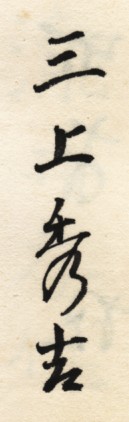 三上秀吉